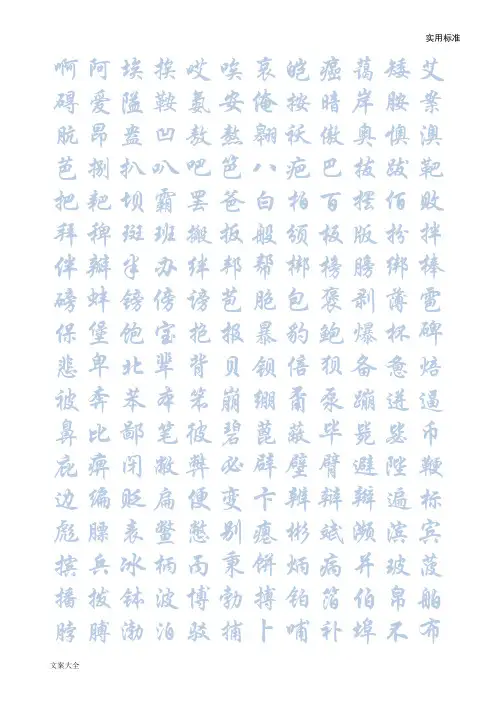 实用标准
啊阿埃挨哎唉哀皑癌蔼矮艾
碍爱隘鞍氨安俺按暗岸胺案
肮昂盎凹敖熬翱袄傲奥懊澳
芭捌扒叭吧笆八疤巴拔跋靶
把耙坝霸罢爸白柏百摆佰败
拜稗斑班搬扳般颁板版扮拌
伴瓣半办绊邦帮梆榜膀绑棒
磅蚌镑傍谤苞胞包褒剥薄雹
保堡饱宝抱报暴豹鲍爆杯碑
悲卑北辈背贝钡倍狈备惫焙
被奔苯本笨崩绷甭泵蹦迸逼
鼻比鄙笔彼碧蓖蔽毕毙毖币
庇痹闭敝弊必辟壁臂避陛鞭
边编贬扁便变卞辨辩辫遍标
彪膘表鳖憋别瘪彬斌濒滨宾
摈兵冰柄丙秉饼炳病并玻菠
播拨钵波博勃搏铂箔伯帛舶
脖膊渤泊驳捕卜哺补埠不布
文案大全